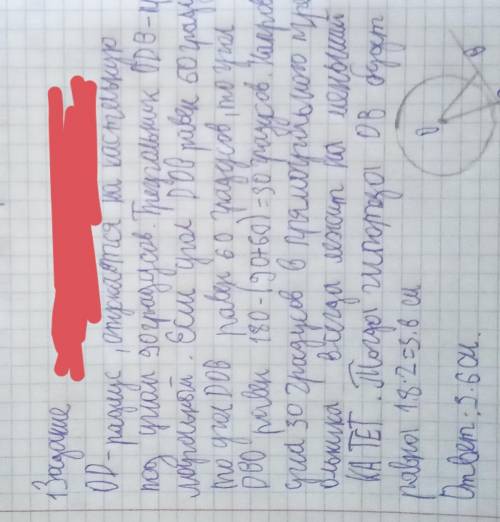 1 Задание
OD-радиус, опускается на касательную
под углом 90 градусов. Треугольник ODB-
Если угол DOB равен 60
то угол DOB равен 60 градусов, то угол
DBO равен 180-(90+60)=30 градусов. Напротив
угла 30 градусов в прямоугольном
всегда лежит на меньший
КАТЕТ. Тогда гипотенуза OB будет
равна 1.8·2=3.6 см
Ответ: 3.6 см.
O
B